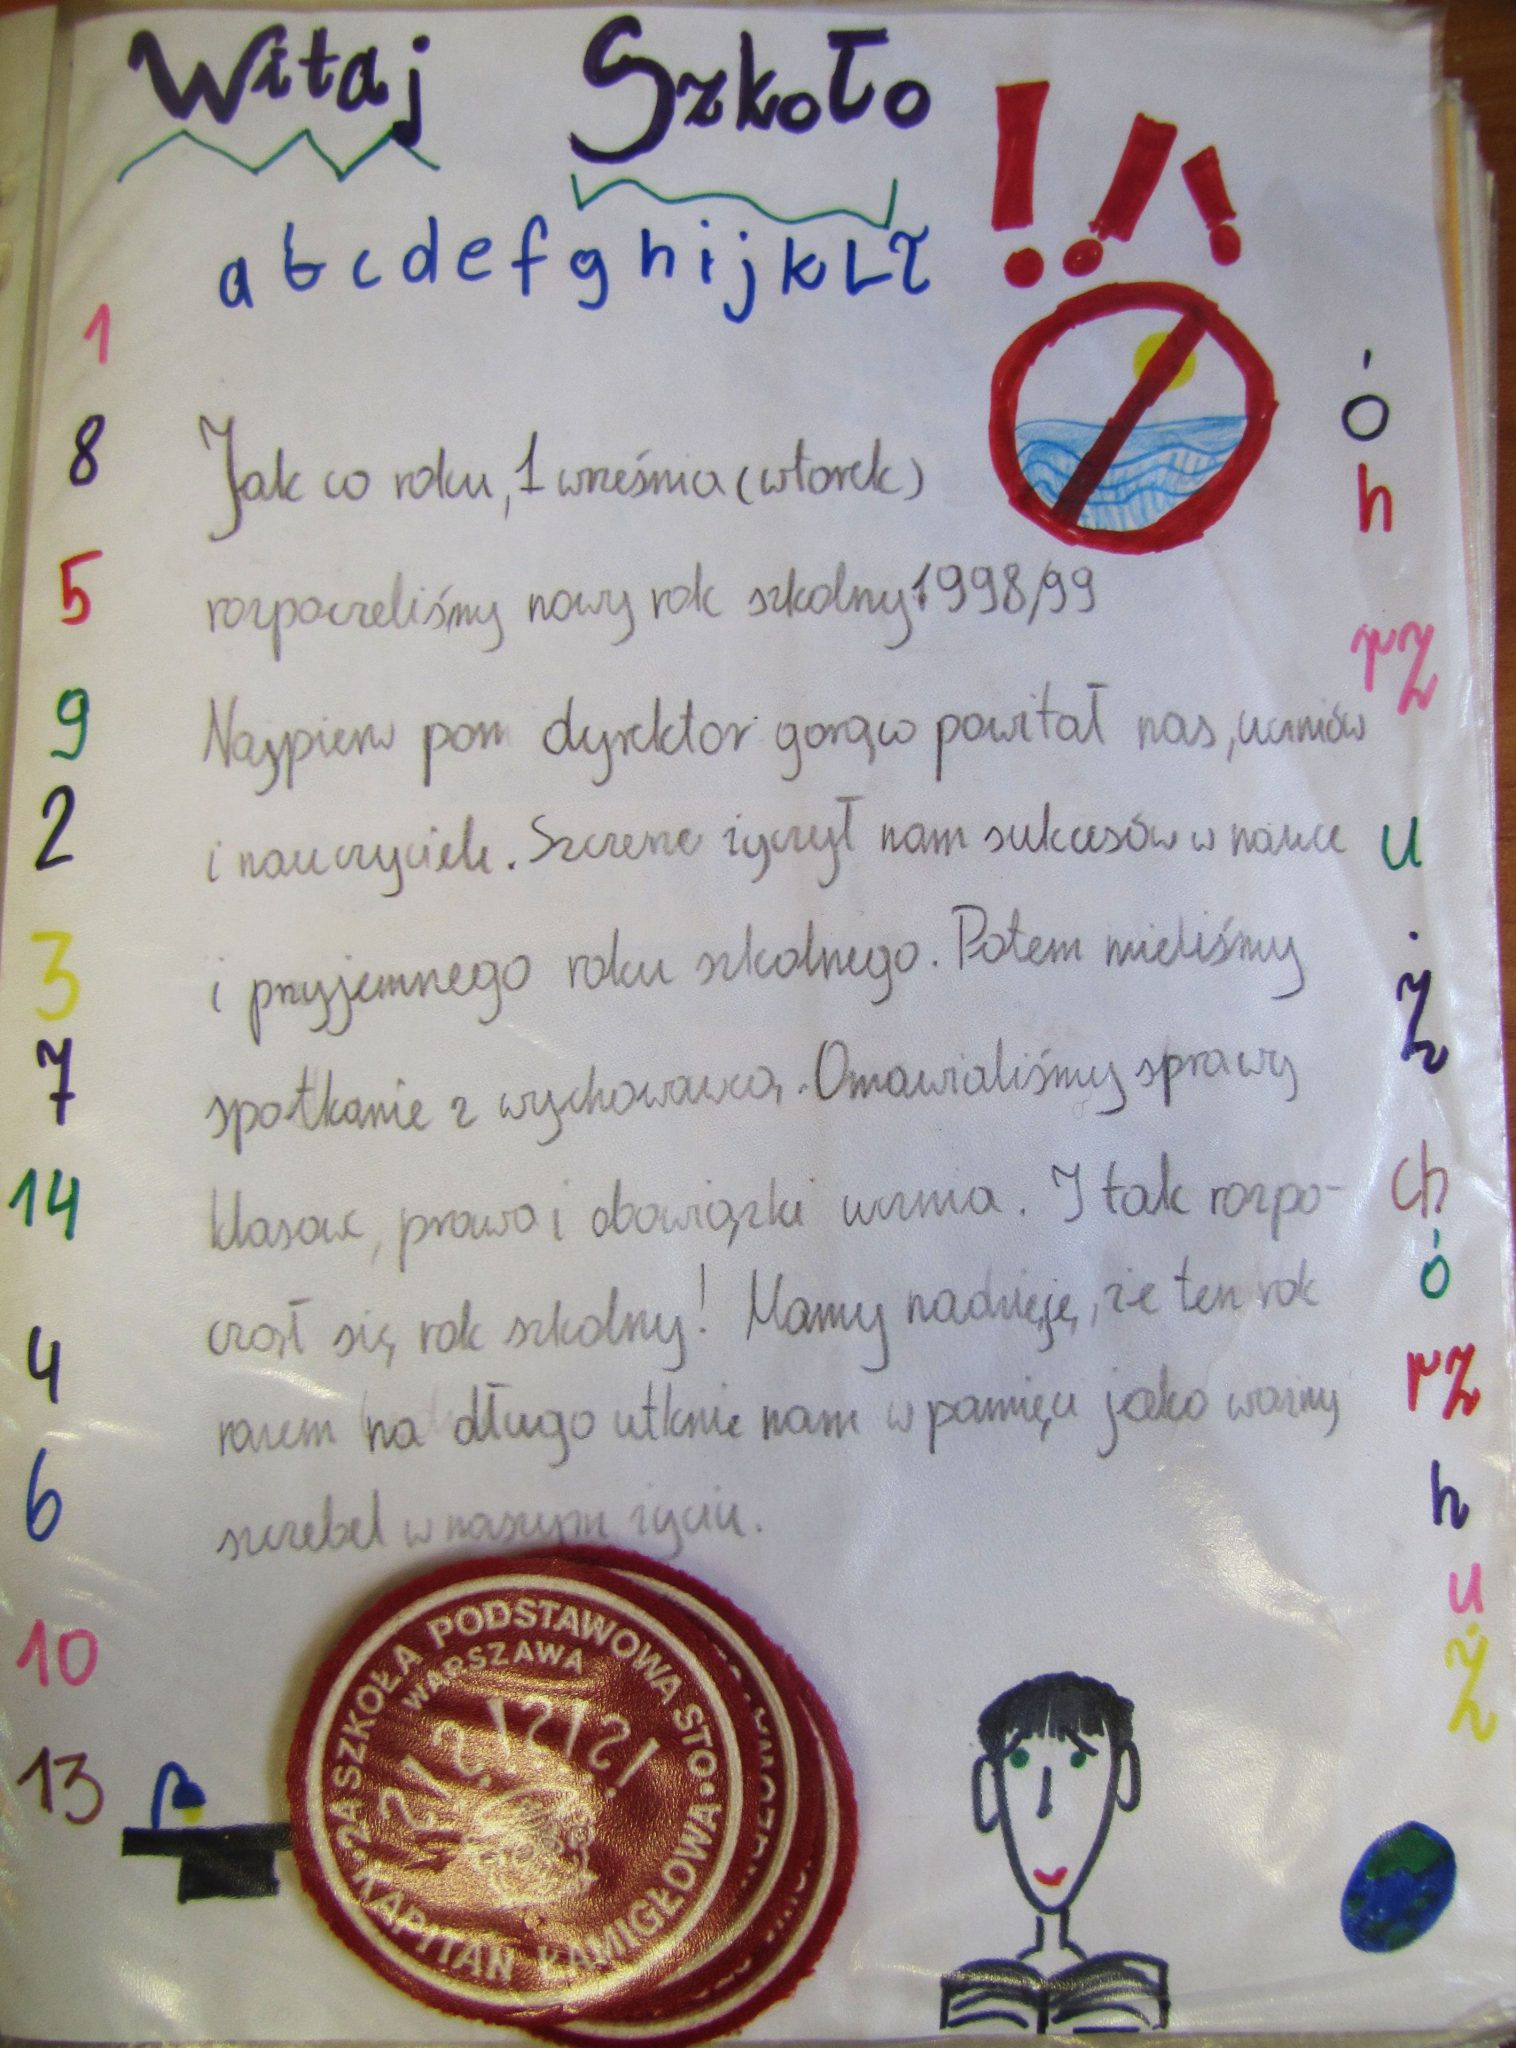 Witaj Szkoło !!!
a b c d e f g h i j k L ł
1
8
5
9
2
3
7
14
4
6
10
13
Jak co roku, 1 września (wtorek)
rozpoczeliśmy nowy rok szkolny 1998/99
Najpierw pan dyrektor gorąco powitał nas, uczniów
i nauczycieli. Szczerze życzył nam sukcesów w nauce
i przyjemnego roku szkolnego. Potem mieliśmy
spotkanie z wychowawcą. Omawialiśmy sprawy
klasowe, prawa i obowiązki ucznia. I tak rozpo-
czął się rok szkolny! Mamy nadzieję, że ten rok
razem na długo utknie nam w pamięci jako ważny
szczebel w naszym życiu.
ó
h
rz
u
ż
ch
ó
rz
h
u
ż
2A SZKOŁA PODSTAWOWA STO.
WARSZAWA
KAPITAN ŁAMIGŁOWA